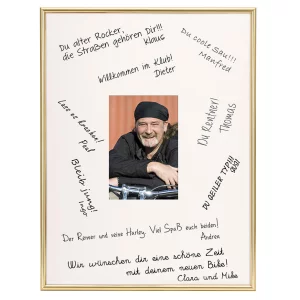 Du alter Rocker,
die Straßen gehören Dir!!!
Klaus
Du coole Sau!!!
Manfred
Willkommen im Klub!
Dieter
Lass es krachen!
Paul
Du Rentner!
Thomas
Bleib jung!
Inger
DU GEILER TYP!!!
Der Renner und seine Harley. Viel Spaß euch beiden!
Andrea
Wir wünschen dir eine schöne Zeit
mit deinem neuen Bike!
Clara und Mike